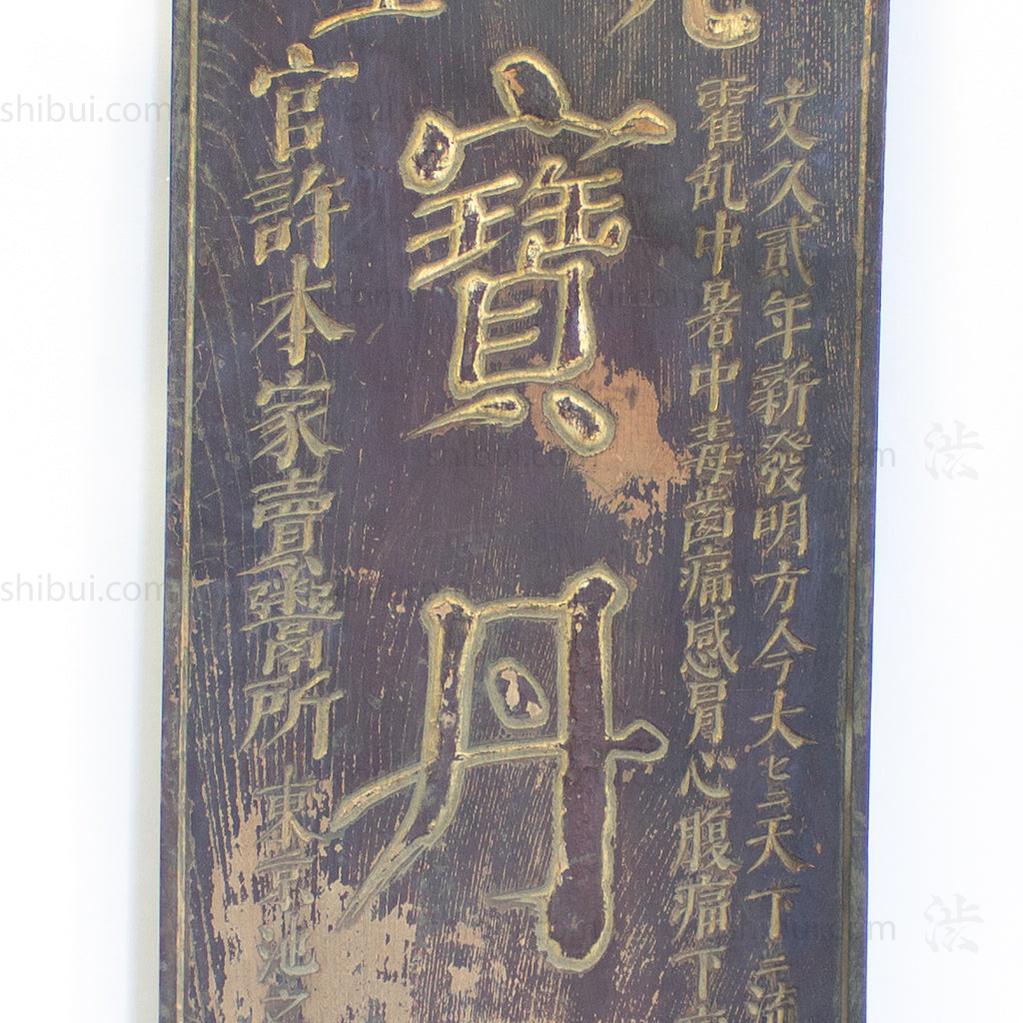 文久貳年新發明方今大ヒニ天下ニ流
霍乱中暑中毒歯痛感冒心腹痛下
寶丹
官許本家賣弘所 東京池之
shibui.com
shibui.com
shibui.com
shibui.com
渋
渋